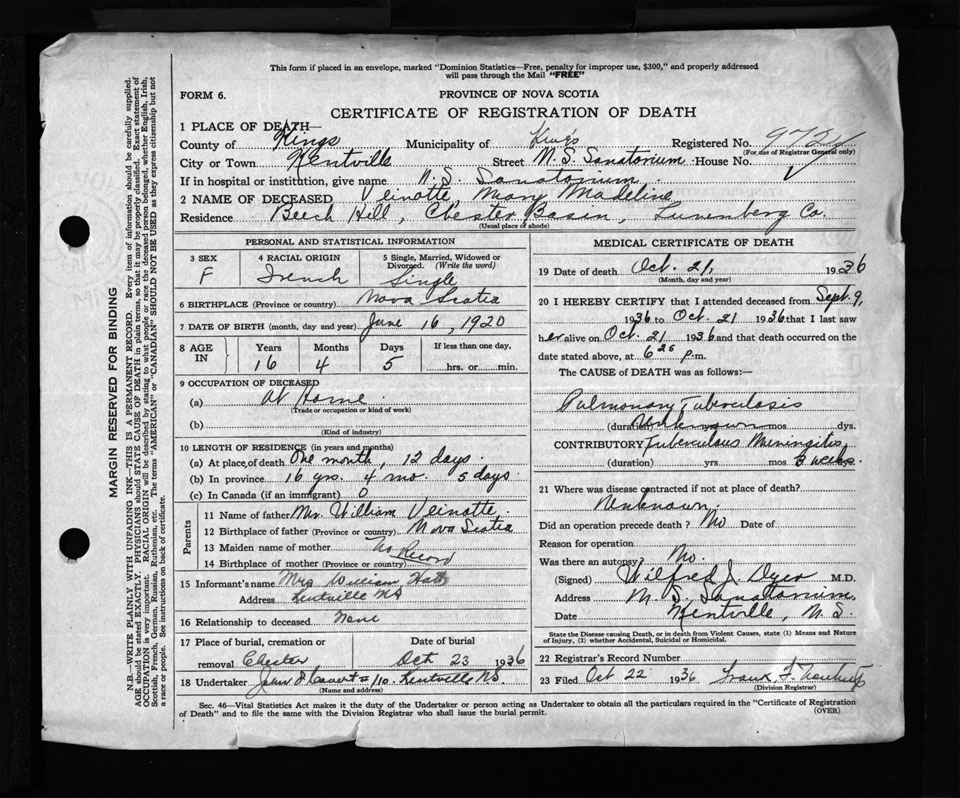 This form if placed in an envelope, marked "Dominion Statistics—Free, penalty for improper use, $300," and properly addressed
will pass through the Mail "FREE"
FORM 6.
PROVINCE OF NOVA SCOTIA
CERTIFICATE OF REGISTRATION OF DEATH
1 PLACE OF DEATH—
County of Kings Municipality of Kings Registered No.
(For use of Registrar General only)
City or Town Kentville Street N.S. Sanatorium House No.
If in hospital or institution, give name N.S. Sanatorium
2 NAME OF DECEASED Veinotte, Mary Madeline
Residence Beech Hill, Chester Basin, Lunenberg Co.
(Usual place of abode)
PERSONAL AND STATISTICAL INFORMATION
3 SEX F
4 RACIAL ORIGIN French
5 Single, Married, Widowed or Divorced. (Write the word) Single
6 BIRTHPLACE (Province or country) Nova Scotia
7 DATE OF BIRTH (month, day and year) June 16, 1920
8 AGE IN Years Months Days If less than one day,
16 4 5 hrs. or min.
9 OCCUPATION OF DECEASED
(a) At Home
(Trade or occupation or kind of work)
(b)
(Kind of industry)
10 LENGTH OF RESIDENCE (in years and months)
(a) At place of death One month, 12 days.
(b) In province 16 yrs. 4 mo. 5 days
(c) In Canada (if an immigrant) 0
Parents
11 Name of father Mr. William Veinotte
12 Birthplace of father (Province or country) Nova Scotia
13 Maiden name of mother No Record
14 Birthplace of mother (Province or country)
15 Informant's name Mrs William
Address Kentville NS
16 Relationship to deceased None
17 Place of burial, cremation or removal Chester
Date of burial Oct 23 1936
18 Undertaker Kentville NS.
(Name and address)
MEDICAL CERTIFICATE OF DEATH
19 Date of death Oct. 21, 1936
(Month, day and year)
20 I HEREBY CERTIFY that I attended deceased from Sept. 9,
1936 to Oct. 21 1936 that I last saw
her alive on Oct. 21 1936 and that death occurred on the
date stated above, at 6 25 p.m.
The CAUSE OF DEATH was as follows:—
Pulmonary Tuberculosis
(duration) Unknown mos dys.
CONTRIBUTORY Tuberculous Meningitis,
(duration) yrs mos 3 weeks.
21 Where was disease contracted if not at place of death?
Unknown.
Did an operation precede death? No Date of
Reason for operation
Was there an autopsy? No.
(Signed) Wilfred J. Dyer M.D.
Address N.S. Sanatorium
Date Kentville, N.S.
State the Disease causing Death, or in death from Violent Causes, state (1) Means and Nature of Injury, (2) whether Accidental, Suicidal or Homicidal.
22 Registrar's Record Number
23 Filed Oct 22 1936 Frank F.
(Division Registrar)
Sec. 46—Vital Statistics Act makes it the duty of the Undertaker or person acting as Undertaker to obtain all the particulars required in the "Certificate of Registration
of Death" and to file the same with the Division Registrar who shall issue the burial permit.
(OVER)
MARGIN RESERVED FOR BINDING
N.B.—WRITE PLAINLY WITH UNFADING INK—THIS IS A PERMANENT RECORD. Every item of information should be carefully supplied.
AGE should be stated EXACTLY. PHYSICIANS should STATE CAUSE OF DEATH in plain terms, so that it may be properly classified. Exact statement of
OCCUPATION is very important. RACIAL ORIGIN will be described by stating to what people or race the deceased person belonged, whether English, Irish,
Scottish, French, German, Russian, Ruthenian, etc. The terms "AMERICAN" or "CANADIAN" SHOULD NOT BE USED as they express citizenship but not
a race or people. See instructions on back of certificate.